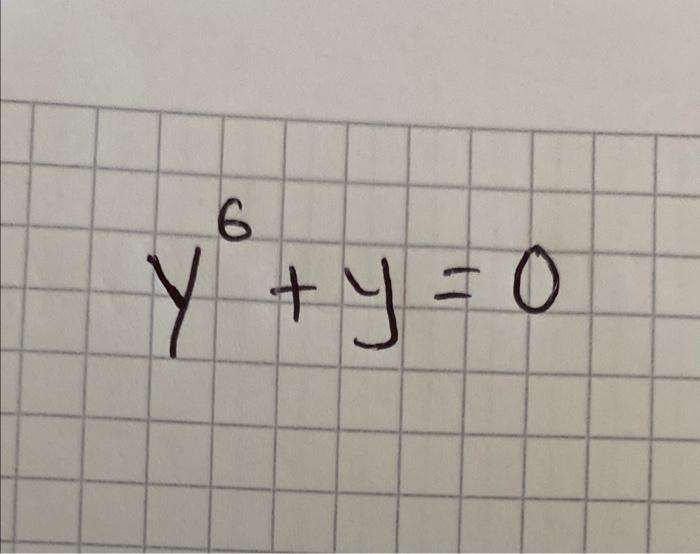 y⁶ + y = 0